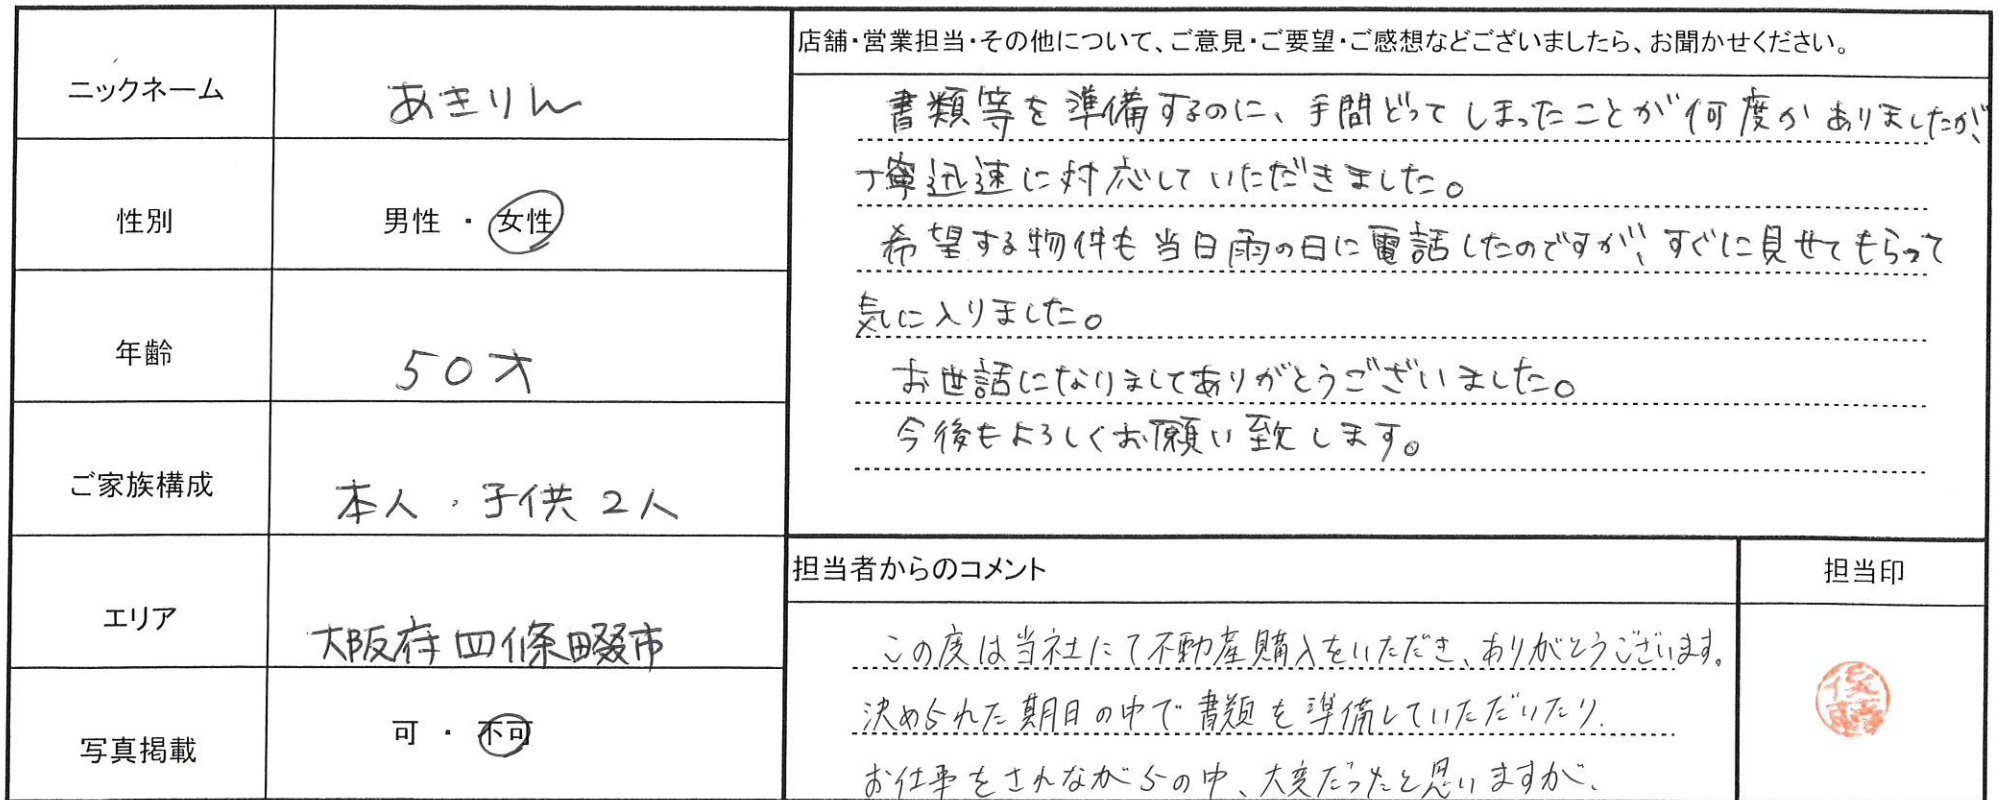 ニックネーム
あきりん
性別
男性 ・ 女性
年齢
50才
ご家族構成
本人・子供2人
エリア
大阪府四條畷市
写真掲載
可 ・ 不可
店舗・営業担当・その他について、ご意見・ご要望・ご感想などございましたら、お聞かせください。
書類等を準備するのに、手間どってしまったことが何度かありましたが、
丁寧迅速に対応していただきました。
希望する物件も当日雨の日に電話したのですが、すぐに見せてもらって
気に入りました。
お世話になりましてありがとうございました。
今後もよろしくお願い致します。
担当者からのコメント
この度は当社にて不動産購入をいただき、ありがとうございます。
決められた期日の中で書類を準備していただいたり、
お仕事をされながらの中、大変だったと思いますが、
担当印